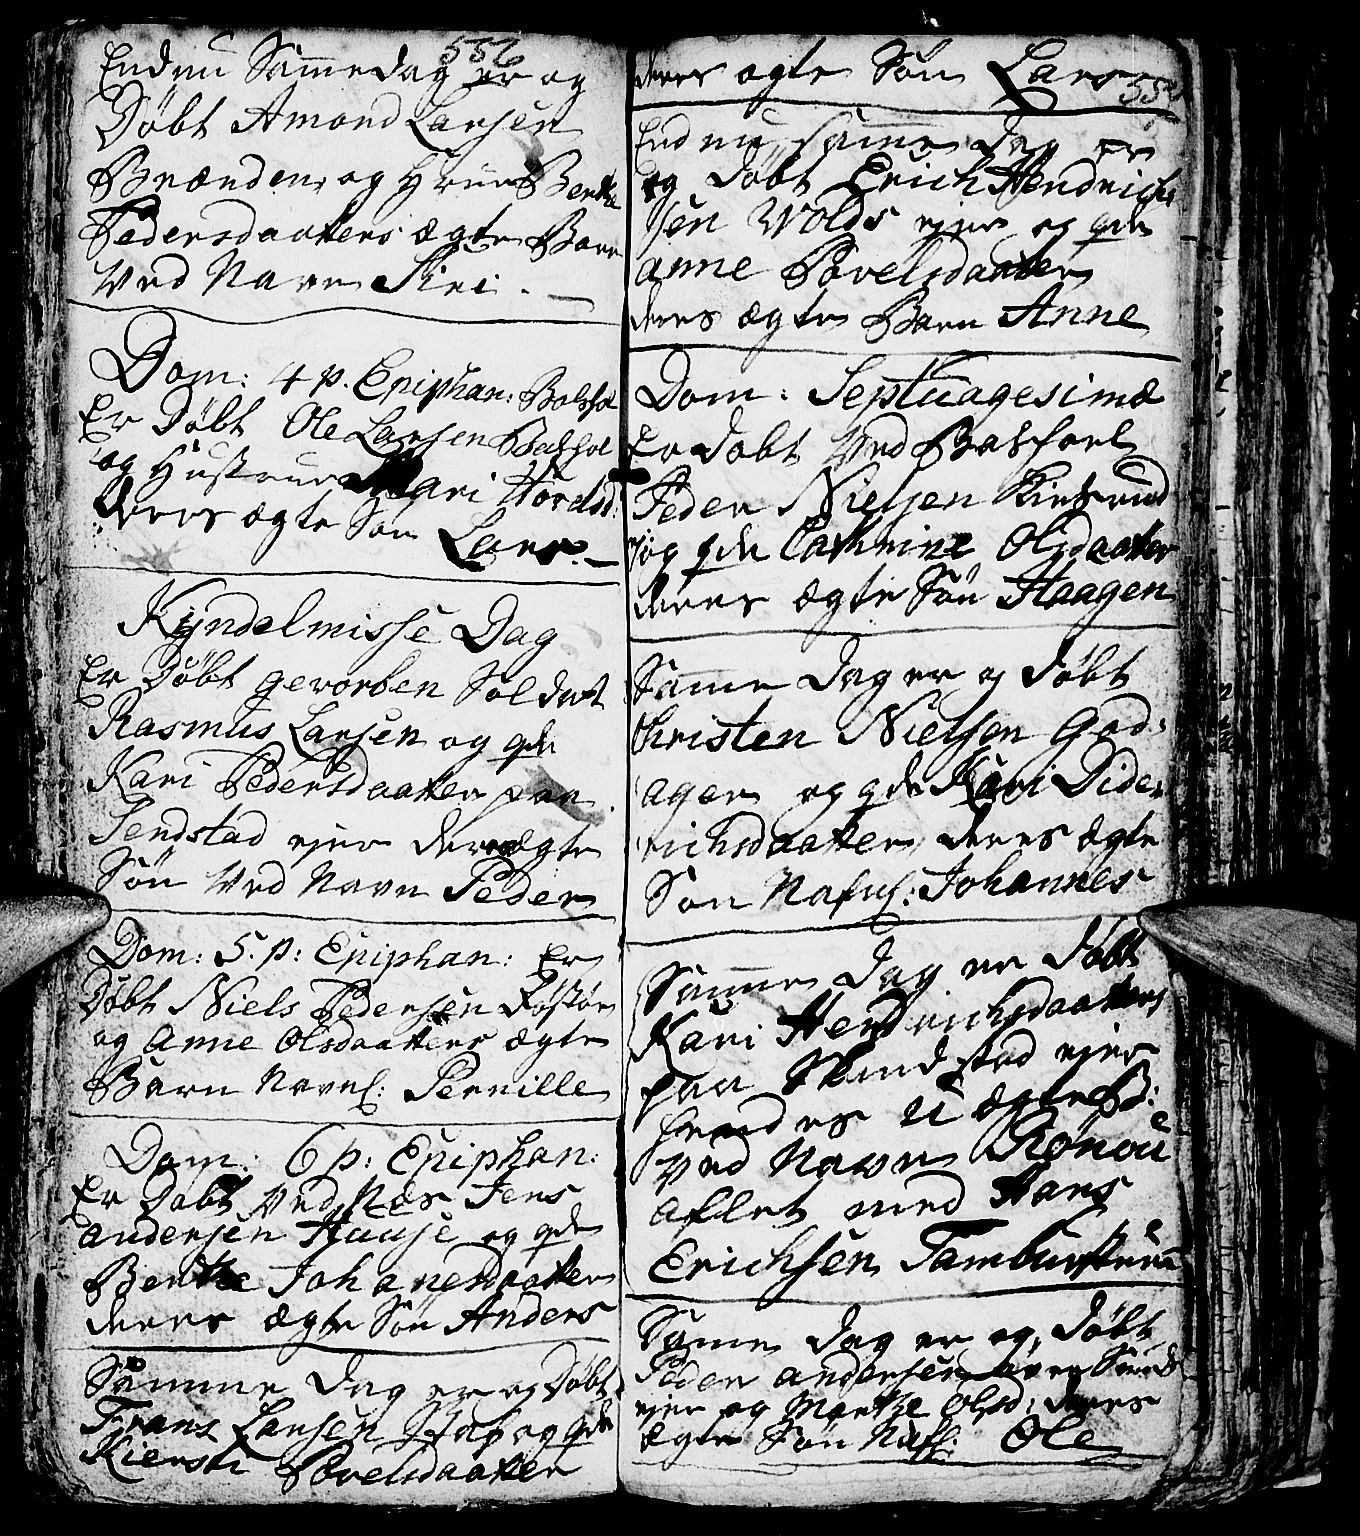 556
Endnu Samme dag er og
Døbt Amond Larsen
Brænden, og Hrue Berthe
Pedersdaatters ægte Barn
Ved Navn Siri.
Dom: 4 p. Epiphan:
Er Døbt Ole Larsen
og Hustrue Kari
deres ægte Søn Lars.
Kyndelmisse Dag
Er Døbt gevorben Soldat
Rasmus Larsen og qde
Kari Pedersdaatter paa
Sendstad ejer deres ægte
Søn Ved Navn Peder
Dom: 5. p: Epiphan: Er
Døbt Niels Pedersen
og Anne Olsdaatters ægte
Barn Navnl: Pernille
Dom: 6 p: Epiphan:
Er Døbt Ved Næs Jens
Andersen og qde
Berthe Johanesdaatter
deres ægte Søn Anders
Samme dag er og Døbt
Frans Larsen og qde
Kiersti Povelsdaatter
deres ægte Søn Lars
End nu samme dag er
og Døbt Erich Hendrich
sen Wolds ejer og qde
Anne Povelsdaatter
deres ægte Barn Anne
Dom: Septuagesimæ
Er døbt Ved
Peder Nielsen
og qde Cathrine Olsdaatter
deres ægte Søn Haagen
Samme dag er og døbt
Christen Nielsen God
ager og qde Kari Dide
richsdaatter, deres ægte
Søn Nafnl: Johannes
Samme dag er døbt
Kari Hendrichsdaatters
paa ejer
hendes U ægte B:
Ved Navn Rønou
aflet med Hans
Erichsen
Samme dag er og døbt
Peder Andersen
ejer og Marthe Olsd: deres
ægte Søn Nafl: Ole